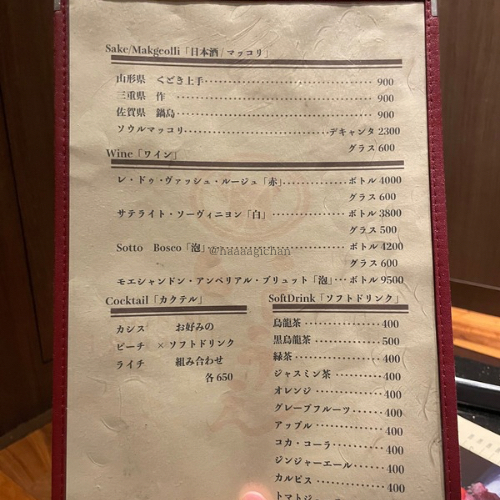 Sake/Makgeolli「日本酒 / マッコリ」
山形県 くどき上手 900
三重県 作 900
佐賀県 鍋島 900
ソウルマッコリ デキャンタ 2300
グラス 600
Wine「ワイン」
レ・ドゥ・ヴァッシュ・ルージュ「赤」 ボトル 4000
グラス 600
サテライト・ソーヴィニヨン「白」 ボトル 3800
グラス 500
Sotto Bosco「泡」 ボトル 4200
@haaaagichan
グラス 600
モエシャンドン・アンペリアル・ブリュット「泡」 ボトル 9500
Cocktail「カクテル」
カシス お好みの
ピーチ × ソフトドリンク
ライチ 組み合わせ
各 650
SoftDrink「ソフトドリンク」
烏龍茶 400
黒烏龍茶 500
緑茶 400
ジャスミン茶 400
オレンジ 400
グレープフルーツ 400
アップル 400
コカ・コーラ 400
ジンジャーエール 400
カルピス 400
トマトジュ